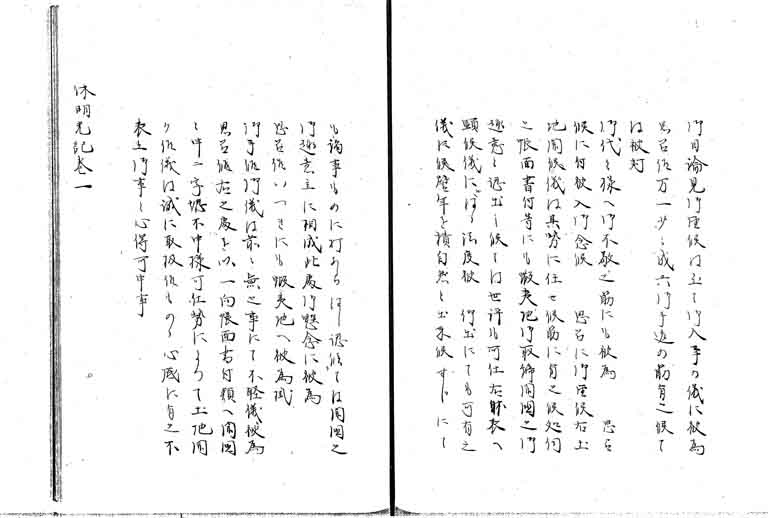 御目論見御座候は至て御入事の儀に被為
思召候万一少々成共御手違の筋有之候て
は被対
御代々様へ御不敬之筋にも被為 思召
候に付被入御念候 思召に御座候右土
地開候儀は其勢に任せ候筋に有之候処何
之帳面書付等にも蝦夷地御取締開国之御
趣意と認出し候ては世評も可仕右躰表へ
顕候儀にては法度被 仰出にても可有之
儀に候歴年を積自然と出来候 にて
も諸事ものに付あらはし認候ては開国之
御趣意主に相成此度御懸念に被為
思召候いつきにも蝦夷地へ被為成
御手候御儀は前々無之事にて不軽儀被為
思召候右之處を以一向帳面書付類へ開国
と申二字認不申様可仕勢によつて土地開
け候儀は誠に取扱候もの心底に有之不
表立御事と心得可申事
休明光記巻一